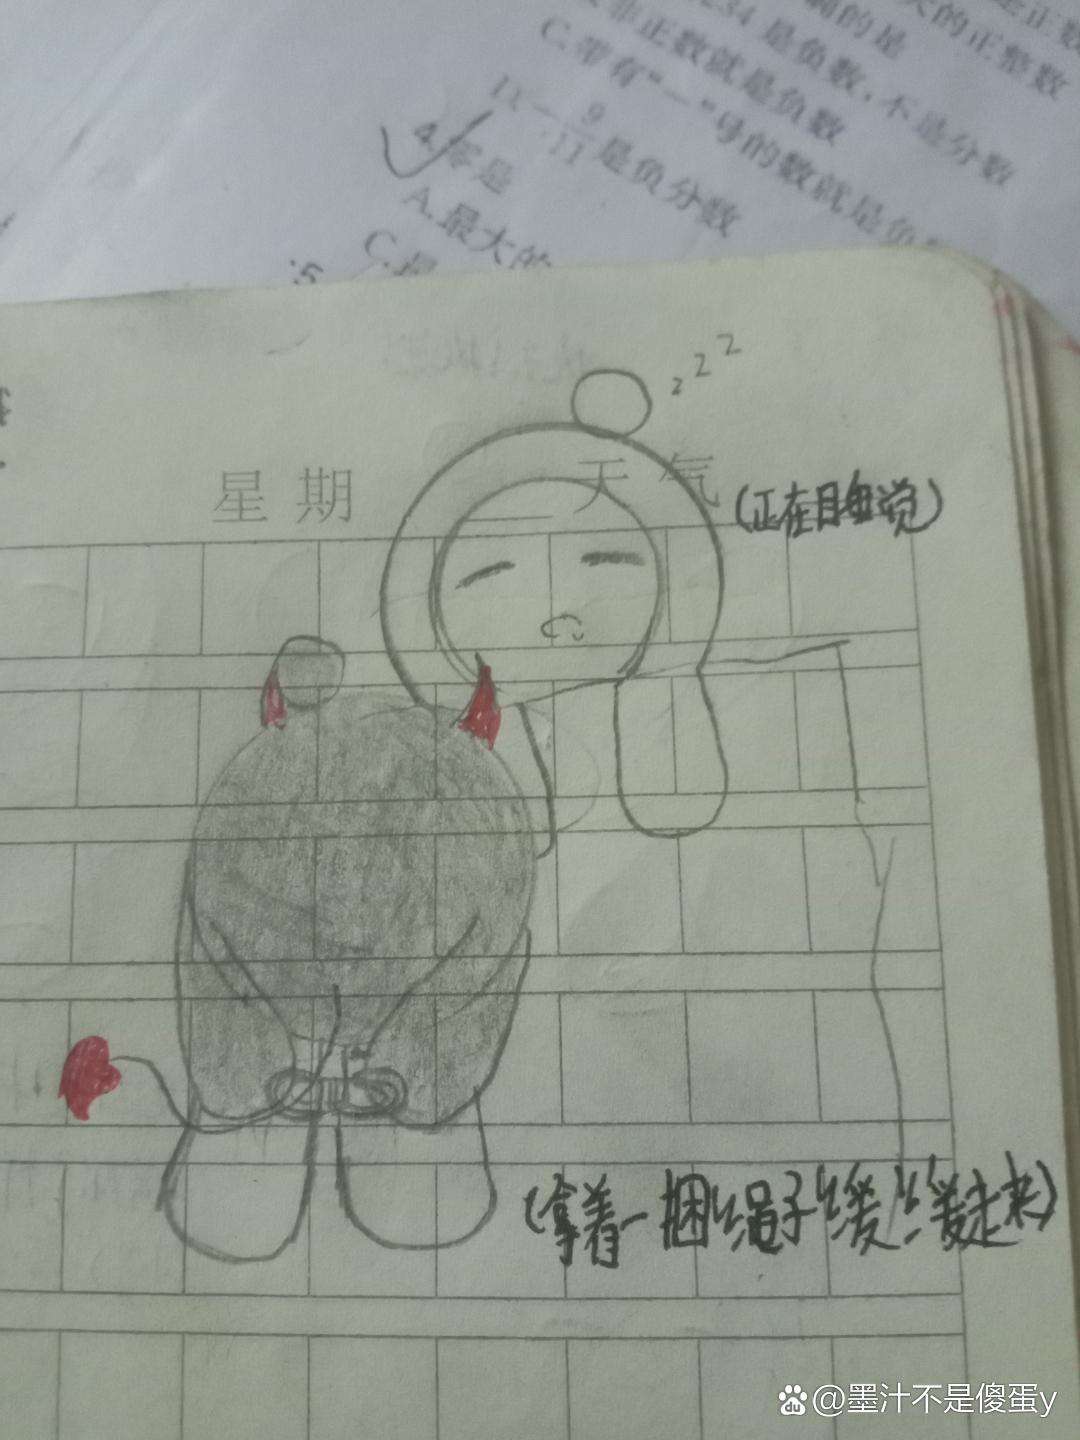 1234是负数,不是分数
非正数就是负数
C.带有"—"号的数就是负
D.-9/11是负分数
4.零是
A.最大的
C.
5
z z z
星期 天气
(正在目垂觉)
(拿着一捆绳子缓缓走来)
@墨汁不是傻蛋y